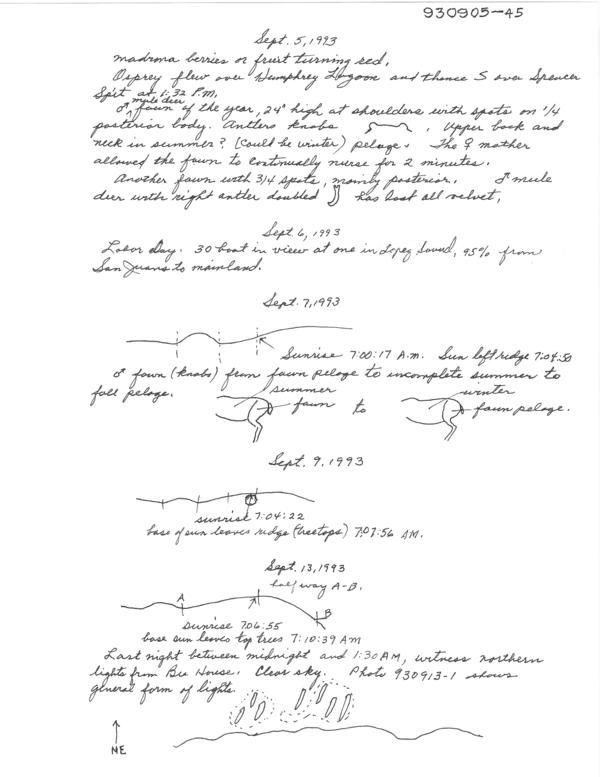 930905-45
Sept. 5, 1993
madrona berries or fruit turning red.
Osprey flew over Humphrey Lagoon and thence S over Spencer
Spit at 1:32 P.M.
♂ mule deer fawn of the year, 24" high at shoulders with spots on 1/4
posterior body. Antlers knobs . Upper back and
neck in summer? (Could be winter) pelage. The ♀ mother
allowed the fawn to continually nurse for 2 minutes.
Another fawn with 3/4 spots, mainly posterior. ♂ mule
deer with right antler doubled has lost all velvet.
Sept. 6, 1993
Labor Day. 30 boat in view at one in Lopez Sound, 95% from
San Juans to mainland.
Sept. 7, 1993
Sunrise 7:00:17 A.M. Sun left ridge 7:04:50
♂ fawn (knobs) from fawn pelage to incomplete summer to
fall pelage.
summer
fawn to
winter
fawn pelage.
Sept. 9, 1993
sunrise 7:04:22
base of sun leaves ridge (treetops) 7:07:56 AM.
Sept. 13, 1993
half way A-B.
A
B
Sunrise 7:06:55
base sun leaves top trees 7:10:39 AM
Last night between midnight and 1:30 AM, witness northern
lights from Bee House. Clear sky. Photo 930913-1 shows
general form of lights.
NE